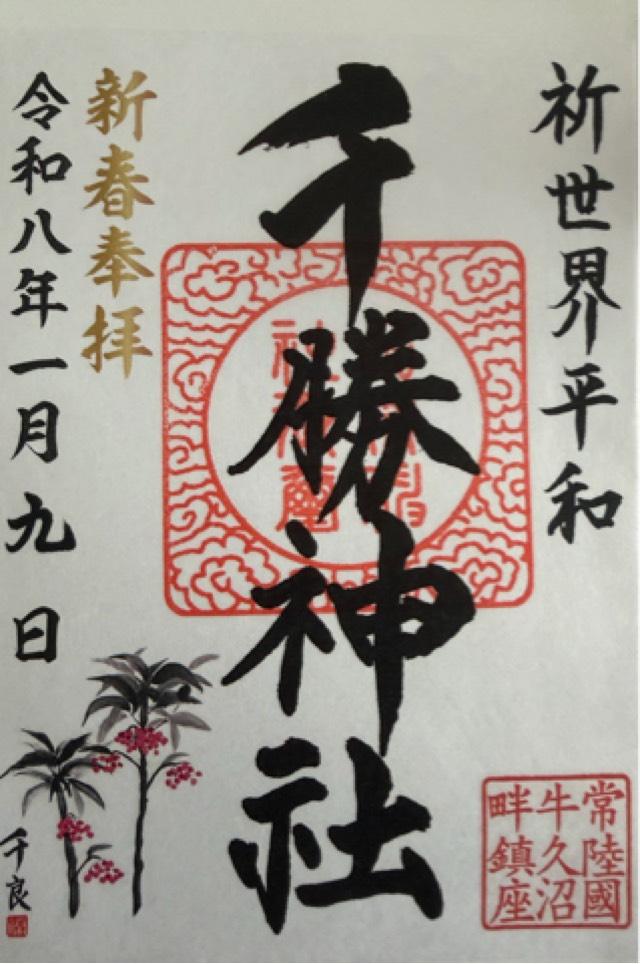 祈世界平和
千勝神社
新春奉拝
令和八年一月九日
千良
常陸國
牛久沼
畔鎮座